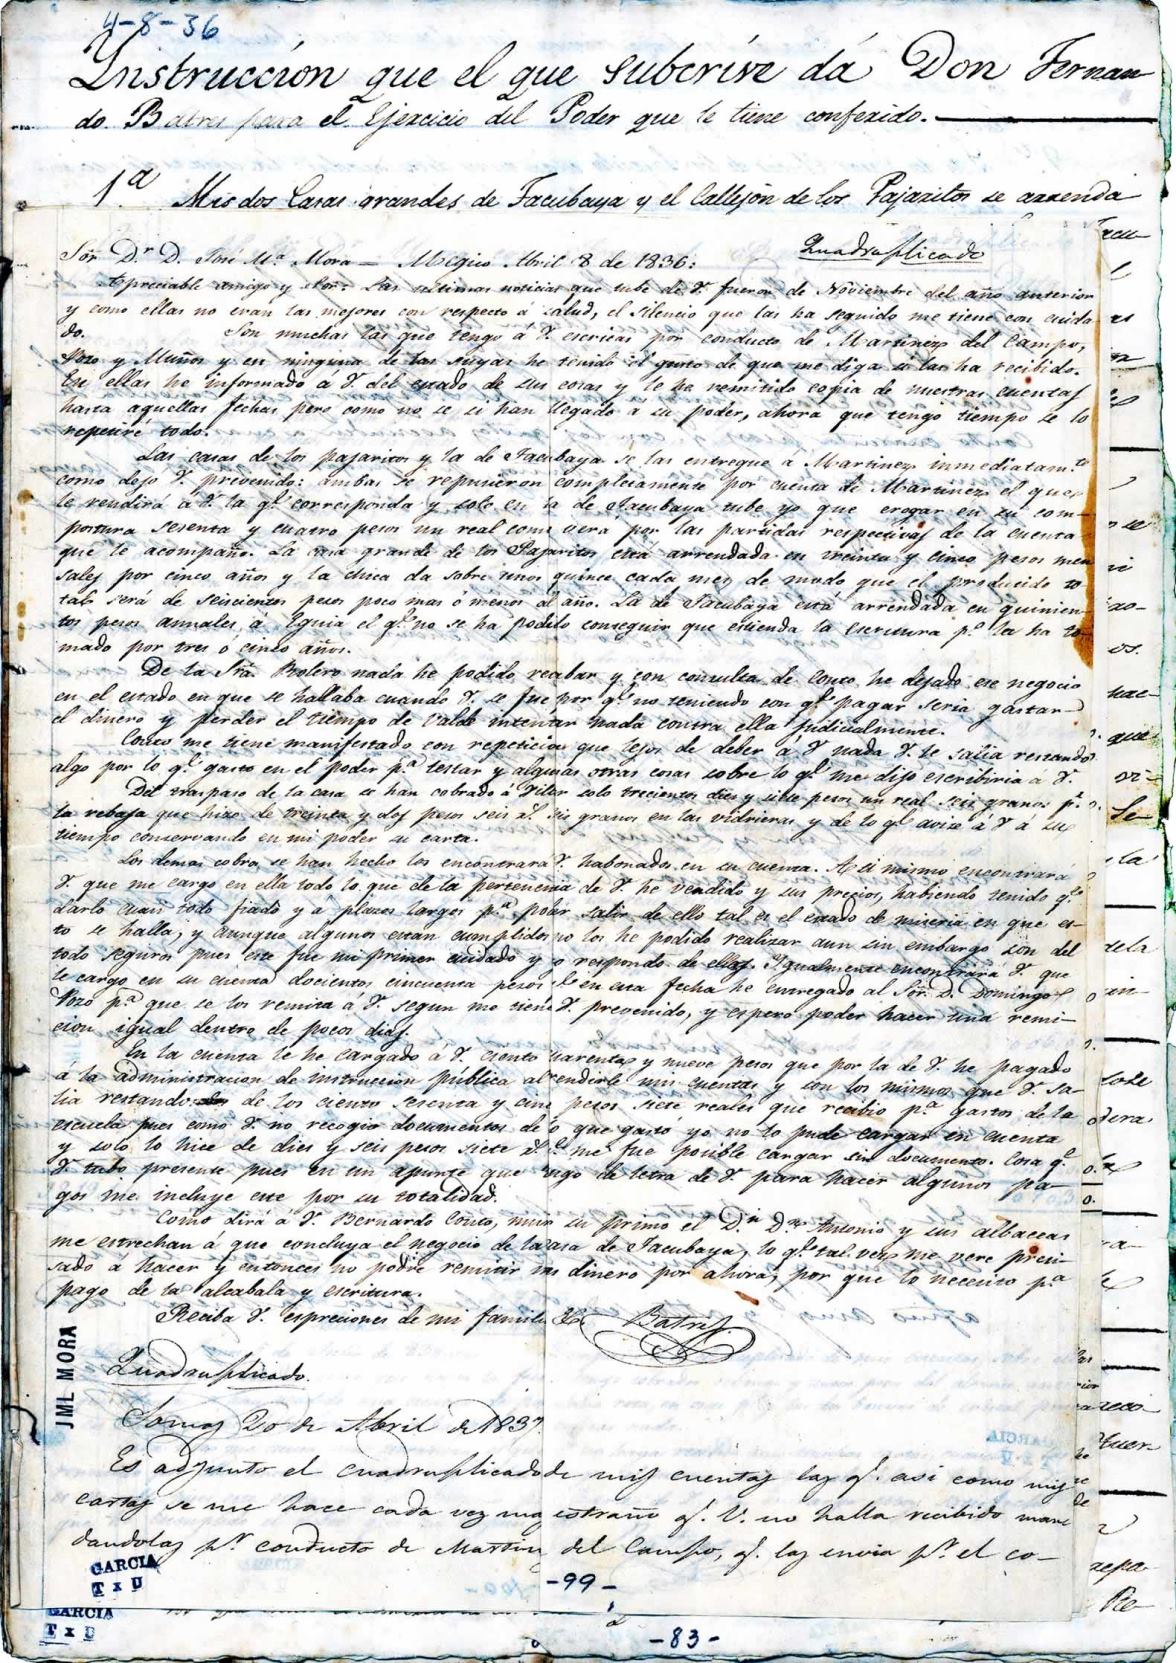 4-8-36
Instrucción que el que subcrive dá Don Fernan
do Batres para el Ejercicio del Poder que le tiene conferido.
1.a Mis dos Casas grandes de Tacubaya y el Callejón de los Pajaritos se arrenda
Quadruplicado
Sõr. Dr. D. José Ma. Mora — Megico Abril 8 de 1836:
Apreciable amigo y Sõr: Las ultimas noticias que tube de V. fueron de Noviembre del año anterior
y como ellas no eran las mejores con respecto á salud, el silencio que las ha seguido me tiene con cuida
do. Son muchas las que tengo á V. escritas por conducto de Martinez del Campo,
Pozo y Muños y en ninguna de las suyas he tenido el gusto de que me diga si las ha recibido.
En ellas he informado a V. del estado de sus cosas y le he remitido copia de nuestras cuentas
hasta aquellas fechas pero como no se si han llegado á su poder, ahora que tengo tiempo se lo
repetiré todo.
Las casas de los pajaritos y la de Tacubaya se las entregue á Martinez inmediatam.te
como dejo V. prevenido: ambas se repusieron completamente por cuenta de Martinez el que
le rendirá á V. la q.e corresponda y solo en la de Tacubaya tube yo que erogar en su com-
postura sesenta y cuatro pesos un real como verá por las partidas respectivas de la cuenta
que le acompaño. La casa grande de los Pajaritos está arrendada en treinta y cinco pesos men
sales por cinco años y la chica da sobre unos quince cada mes de modo que el producido to
tal será de seiscientos pesos poco mas ó menos al año. La de Tacubaya está arrendada en quinien
tos pesos annales á Eguia el q.e no se ha podido conseguir que estienda la Escritura p.r la ha to
mado por tres ó cinco años.
De la Sra. Botero nada he podido recabar y con consulta de Couto he dejado ese negocio
en el estado en que se hallaba cuando V. se fue por q.e no teniendo con q.e pagar seria gastar
el dinero y perder el tiempo de valde intentar nada contra ella judicialmente.
Couto me tiene manifestado con repeticion que lejos de deber á V. nada V. le salia restando
algo por lo q.e gasto en el poder p.a testar y algunas otras cosas sobre lo q.e me dijo escribiria á V.
Del traspaso de la casa se han cobrado á Vilar solo trecientos dies y siete pesos un real seis granos p.r
la rebaja que hizo de treinta y dos pesos seis r.s seis granos en las vidrieras y de lo q.e avise á V. á su
tiempo conservando en mi poder su carta.
Los demas cobros se han hecho los encontrara V. habonados en su cuenta. Asi mismo encontrara
V. que me cargo en ella todo lo que de la pertenencia de V. he vendido y sus precios, habiendo tenido q.e
darlo cuasi todo fiado y á plazos largos p.a poder salir de ello tal es el estado de miseria en que es-
to se halla, y aunque algunos estan cumplidos no los he podido realizar aun sin embargo son del
todo seguros pues este fue mi primer cuidado y yo respondo de ellos. Igualmente encontrará V. que
le cargo en su cuenta docientos cincuenta pesos q.e en esta fecha he entregado al Sõr. D. Domingo
Pozo p.a que se los remita á V. segun me tiene V. prevenido, y espero poder hacer una remi-
cion igual dentro de pocos dias.
En la cuenta le he cargado á V. ciento cuarenta y nueve pesos que por la de V. he pagado
a la administracion de instruccion pública al rendirle mis cuentas y son los mismos que V. sa-
lia restando de los ciento sesenta y cinco pesos siete reales que recibio p.a gastos de la
escuela pues como V. no recogio documentos de lo que gastó yo no lo pude cargar en cuenta
y solo lo hice de dies y seis pesos siete r.s q.e me fue posible cargar sin documento. Cosa q.e
V. tubo presente pues en un apunte que tengo de letra de V. para hacer algunos pa-
gos me incluye este por su totalidad.
Como dirá á V. Bernardo Couto, murio su primo el D.n D.r Antonio y sus albaceas
me estrechan á que concluya el negocio de la casa de Tacubaya, lo q.e tal vez me vere preci-
sado a hacer y entonces no podre remitir mas dinero por ahora, por que lo necesito p.a
pago de la alcabala y escritura.
Reciba V. espreciones de mi familia &.
Batres
Quadruplicado.
20 de Abril de 1837.
Es adjunto el cuadruplicado de mis cuentas las q.e asi como mis
cartas se me hace cada vez mas estraño q.e V. no halla recibido man
dandolas p.r conducto de Martinez del Campo, q.e las envia p.r el co-
JML MORA
GARCIA
T x U
-99-
GARCIA
T x U
-83-